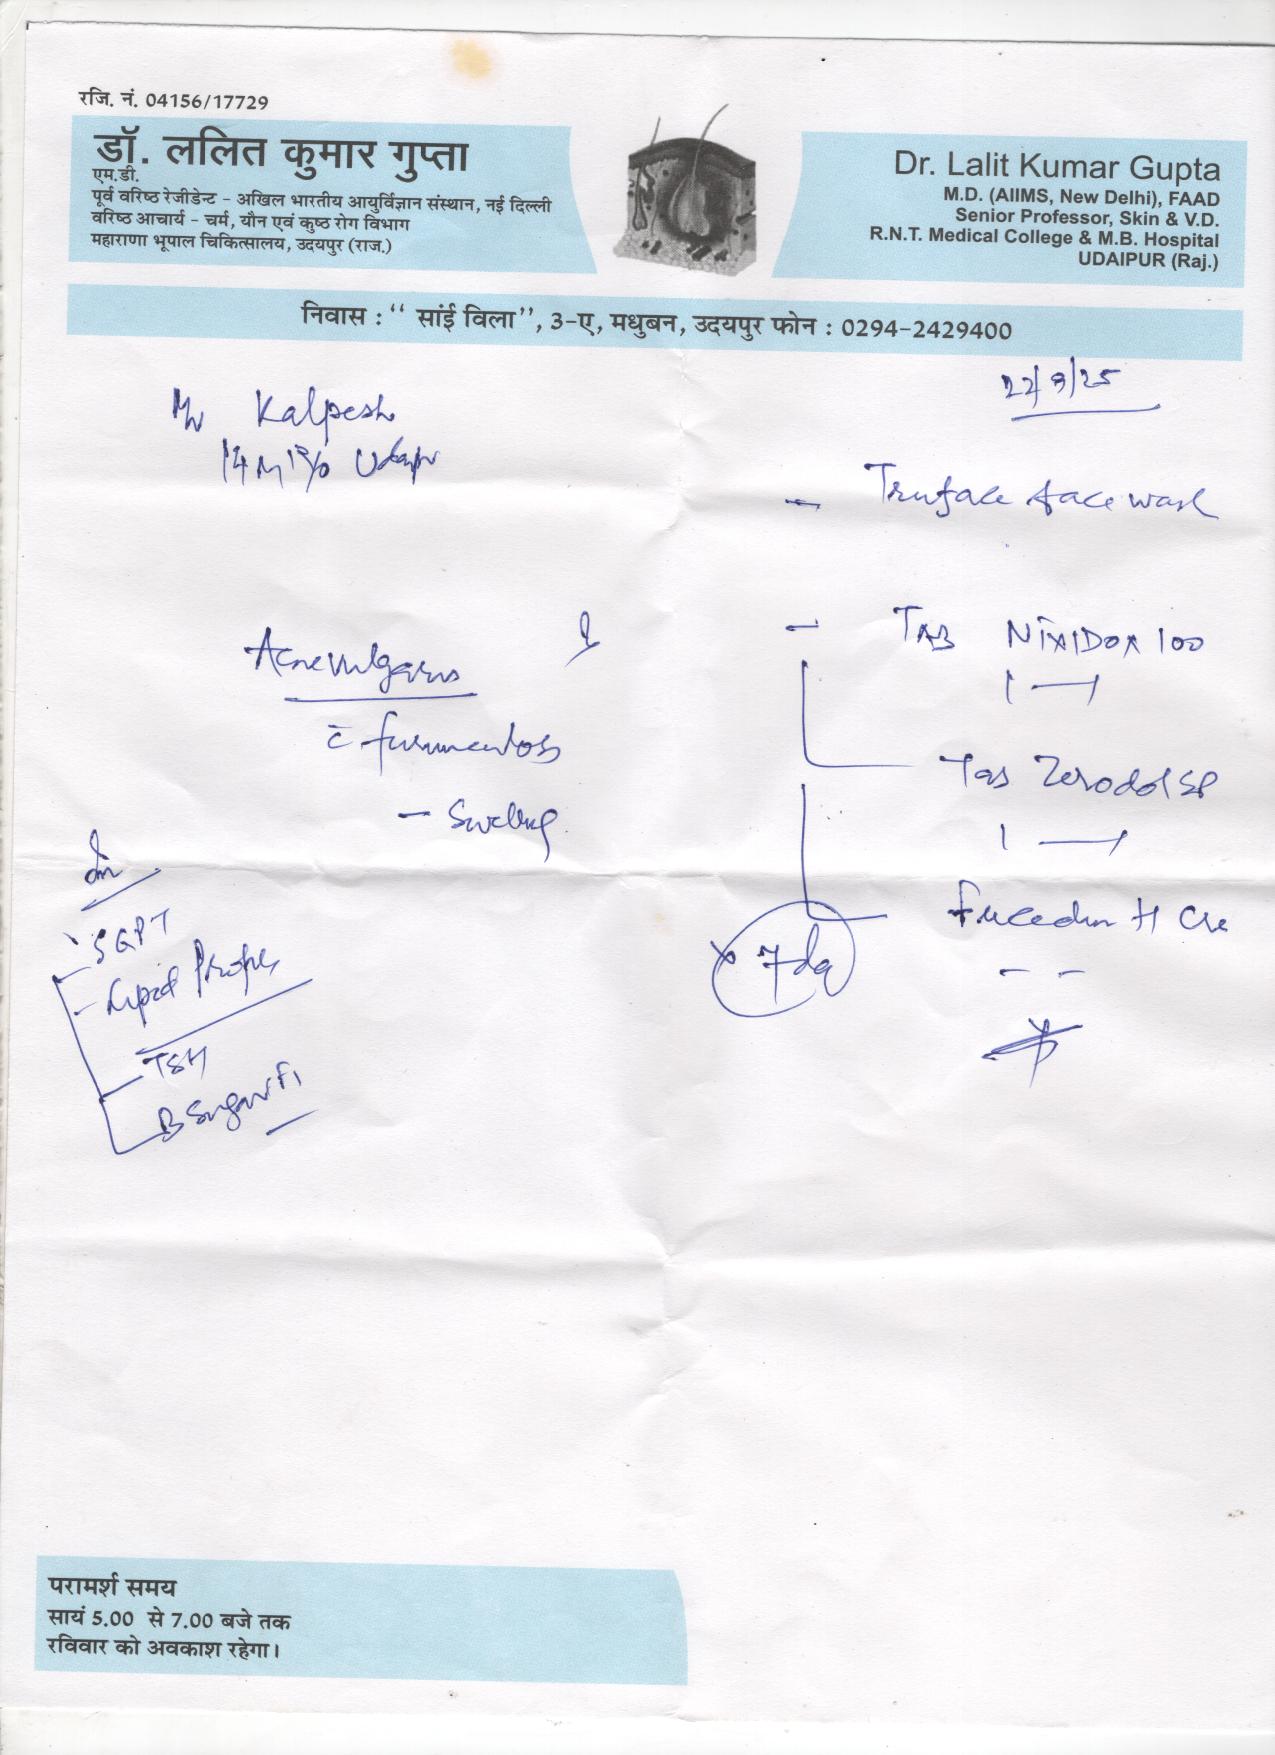 रजि. नं. 04156/17729
डॉ. ललित कुमार गुप्ता
एम.डी.
पूर्व वरिष्ठ रेजीडेन्ट - अखिल भारतीय आयुर्विज्ञान संस्थान, नई दिल्ली
वरिष्ठ आचार्य - चर्म, यौन एवं कुष्ठ रोग विभाग
महाराणा भूपाल चिकित्सालय, उदयपुर (राज.)
Dr. Lalit Kumar Gupta
M.D. (AIIMS, New Delhi), FAAD
Senior Professor, Skin & V.D.
R.N.T. Medical College & M.B. Hospital
UDAIPUR (Raj.)
निवास : ‘‘ सांई विला’’, 3-ए, मधुबन, उदयपुर फोन : 0294-2429400
Kalpesh
Acne vulgaris
- Swelling
SGPT
- Lipid Profile
TSH
B Sugar
- Truface face wash
- TAB NIXIDOX 100
1
Tab Zerodol SP
1
H
x 7
परामर्श समय
सायं 5.00 से 7.00 बजे तक
रविवार को अवकाश रहेगा।